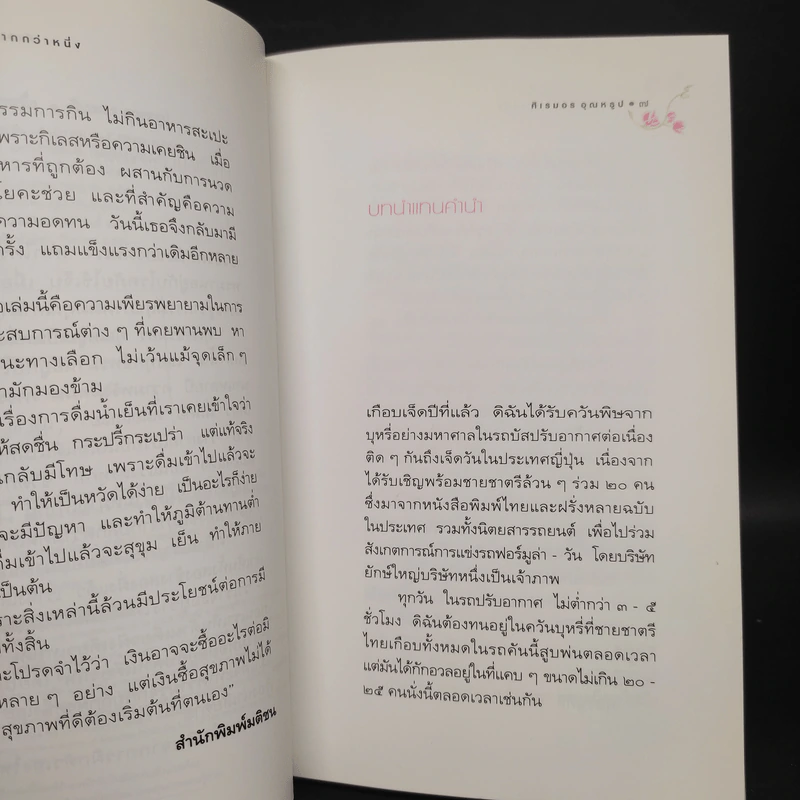 ากกว่าหนึ่ง
รรมการกิน ไม่กินอาหารสะเปะ
พราะกิเลสหรือความเคยชิน เมื่อ
หารที่ถูกต้อง ผสานกับการนวด
โยคะช่วย และที่สำคัญคือความ
ความอดทน วันนี้เธอจึงกลับมามี
ครั้ง แถมแข็งแรงกว่าเดิมอีกหลาย
อเล่มนี้คือความเพียรพยายามในการ
ะสบการณ์ต่าง ๆ ที่เคยพานพบ หา
นะทางเลือก ไม่เว้นแม้จุดเล็ก ๆ
ามักมองข้าม
เรื่องการดื่มน้ำเย็นที่เราเคยเข้าใจว่า
ห้สดชื่น กระปรี้กระเปร่า แต่แท้จริง
นกลับมีโทษ เพราะดื่มเข้าไปแล้วจะ
ทำให้เป็นหวัดได้ง่าย เป็นอะไรก็ง่าย
จะมีปัญหา และทำให้ภูมิต้านทานต่ำ
ื่มเข้าไปแล้วจะสุขุม เย็น ทำให้ภาย
เป็นต้น
ราะสิ่งเหล่านี้ล้วนมีประโยชน์ต่อการมี
ทั้งสิ้น
ะโปรดจำไว้ว่า เงินอาจจะซื้ออะไรต่อมิ
หลาย ๆ อย่าง แต่เงินซื้อสุขภาพไม่ได้
สุขภาพที่ดีต้องเริ่มต้นที่ตนเอง”
สำนักพิมพ์มติชน
ศิเรมอร อุณหธูป ๗
บทนำแทนคำนำ
เกือบเจ็ดปีที่แล้ว ดิฉันได้รับควันพิษจาก
บุหรี่อย่างมหาศาลในรถบัสปรับอากาศต่อเนื่อง
ติด ๆ กันถึงเจ็ดวันในประเทศญี่ปุ่น เนื่องจาก
ได้รับเชิญพร้อมชายชาตรีล้วน ๆ ร่วม ๒๐ คน
ซึ่งมาจากหนังสือพิมพ์ไทยและฝรั่งหลายฉบับ
ในประเทศ รวมทั้งนิตยสารรถยนต์ เพื่อไปร่วม
สังเกตการณ์การแข่งรถฟอร์มูล่า - วัน โดยบริษัท
ยักษ์ใหญ่บริษัทหนึ่งเป็นเจ้าภาพ
ทุกวัน ในรถปรับอากาศ ไม่ต่ำกว่า ๓ - ๕
ชั่วโมง ดิฉันต้องทนอยู่ในควันบุหรี่ที่ชายชาตรี
ไทยเกือบทั้งหมดในรถคันนี้สูบพ่นตลอดเวลา
แต่มันได้กักอวลอยู่ในที่แคบ ๆ ขนาดไม่เกิน ๒๐ -
๒๕ คนนั่งนี้ตลอดเวลาเช่นกัน